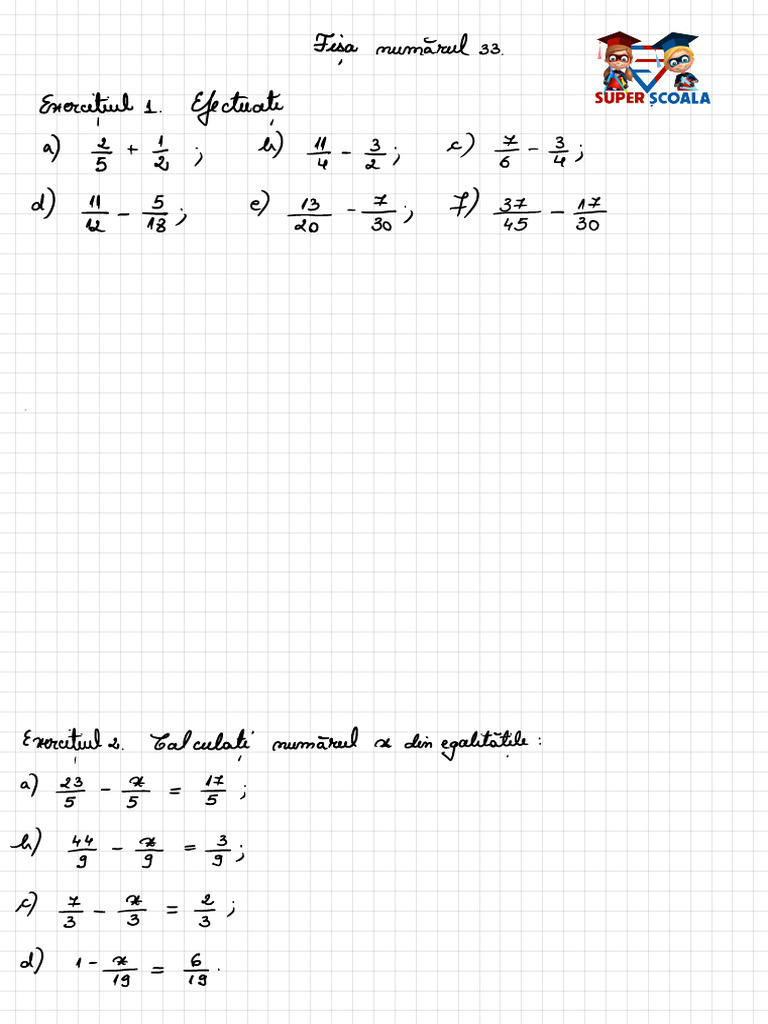 Fișa numărul 33.
SUPER ȘCOALA
Exercițiul 1. Efectuați
a) 2/5 + 1/2 ; b) 11/4 - 3/2 ; c) 7/6 - 3/4 ;
d) 11/12 - 5/18 ; e) 13/20 - 7/30 ; f) 37/45 - 17/30
Exercițiul 2. Calculați numărul x din egalitățile :
a) 23/5 - x/5 = 17/5 ;
b) 44/9 - x/9 = 3/9 ;
c) 7/3 - x/3 = 2/3 ;
d) 1 - x/19 = 6/19 .